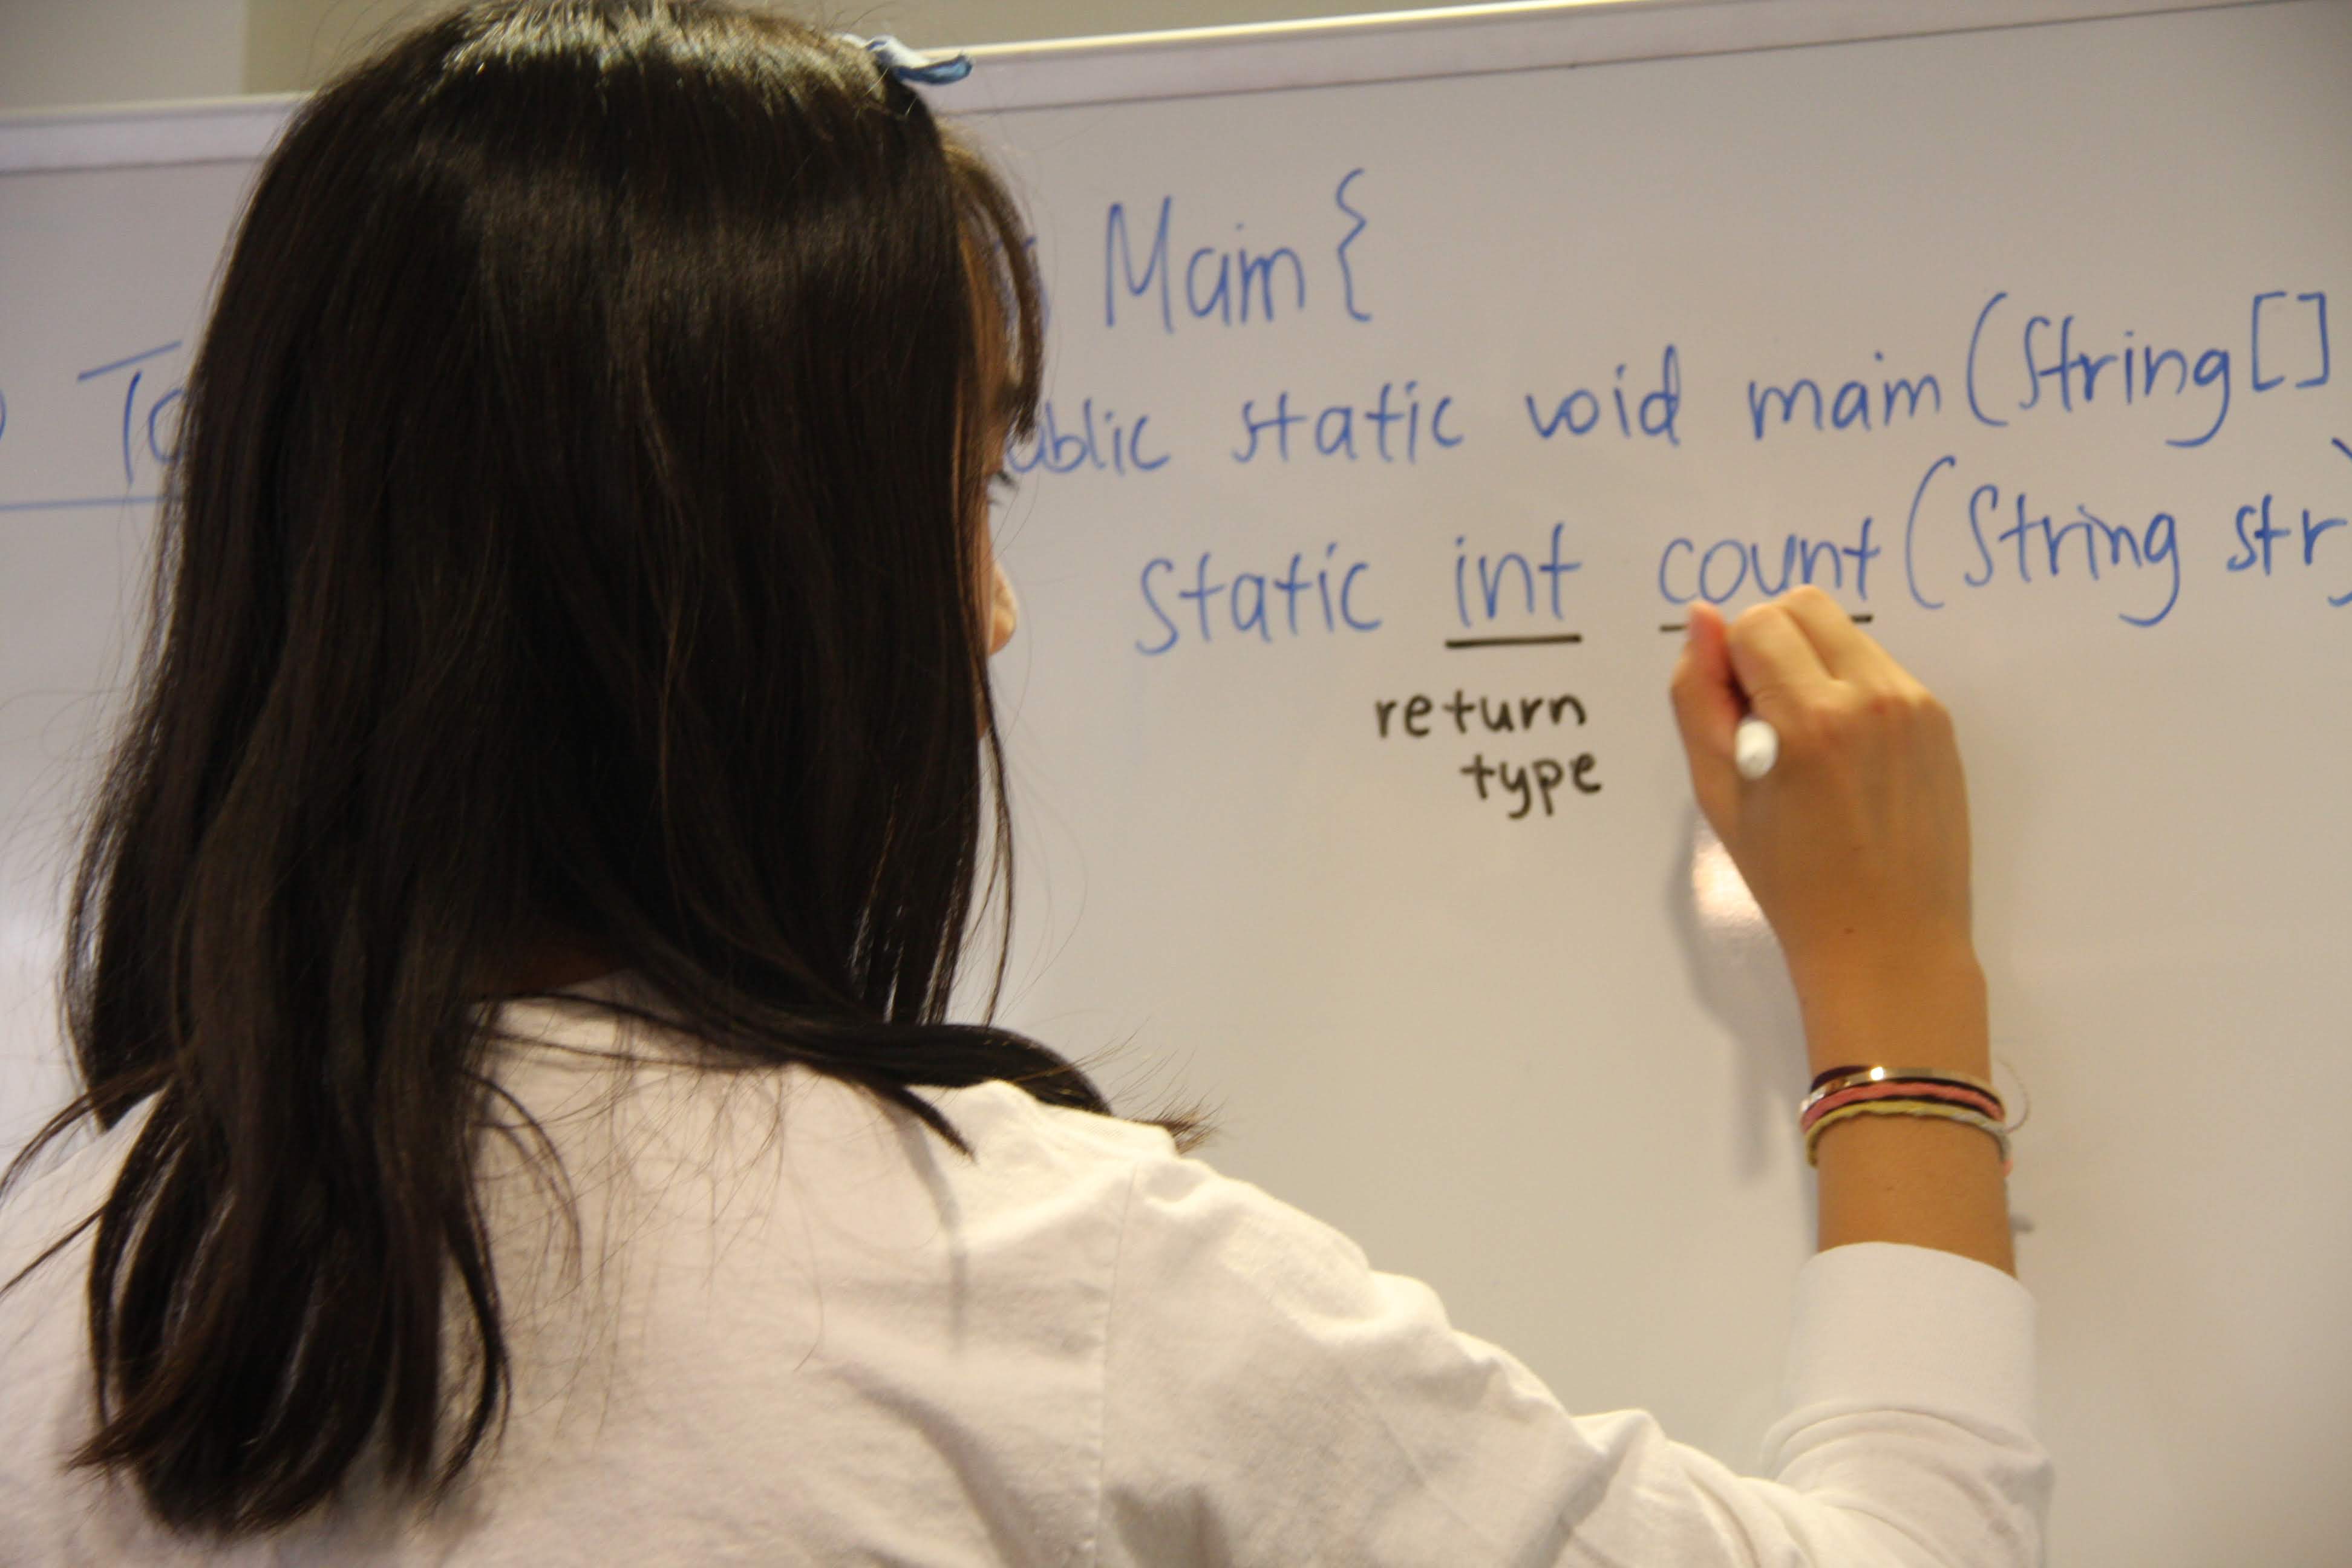 Main {
To
ublic static void main (String []
static int count (String str)
return
type